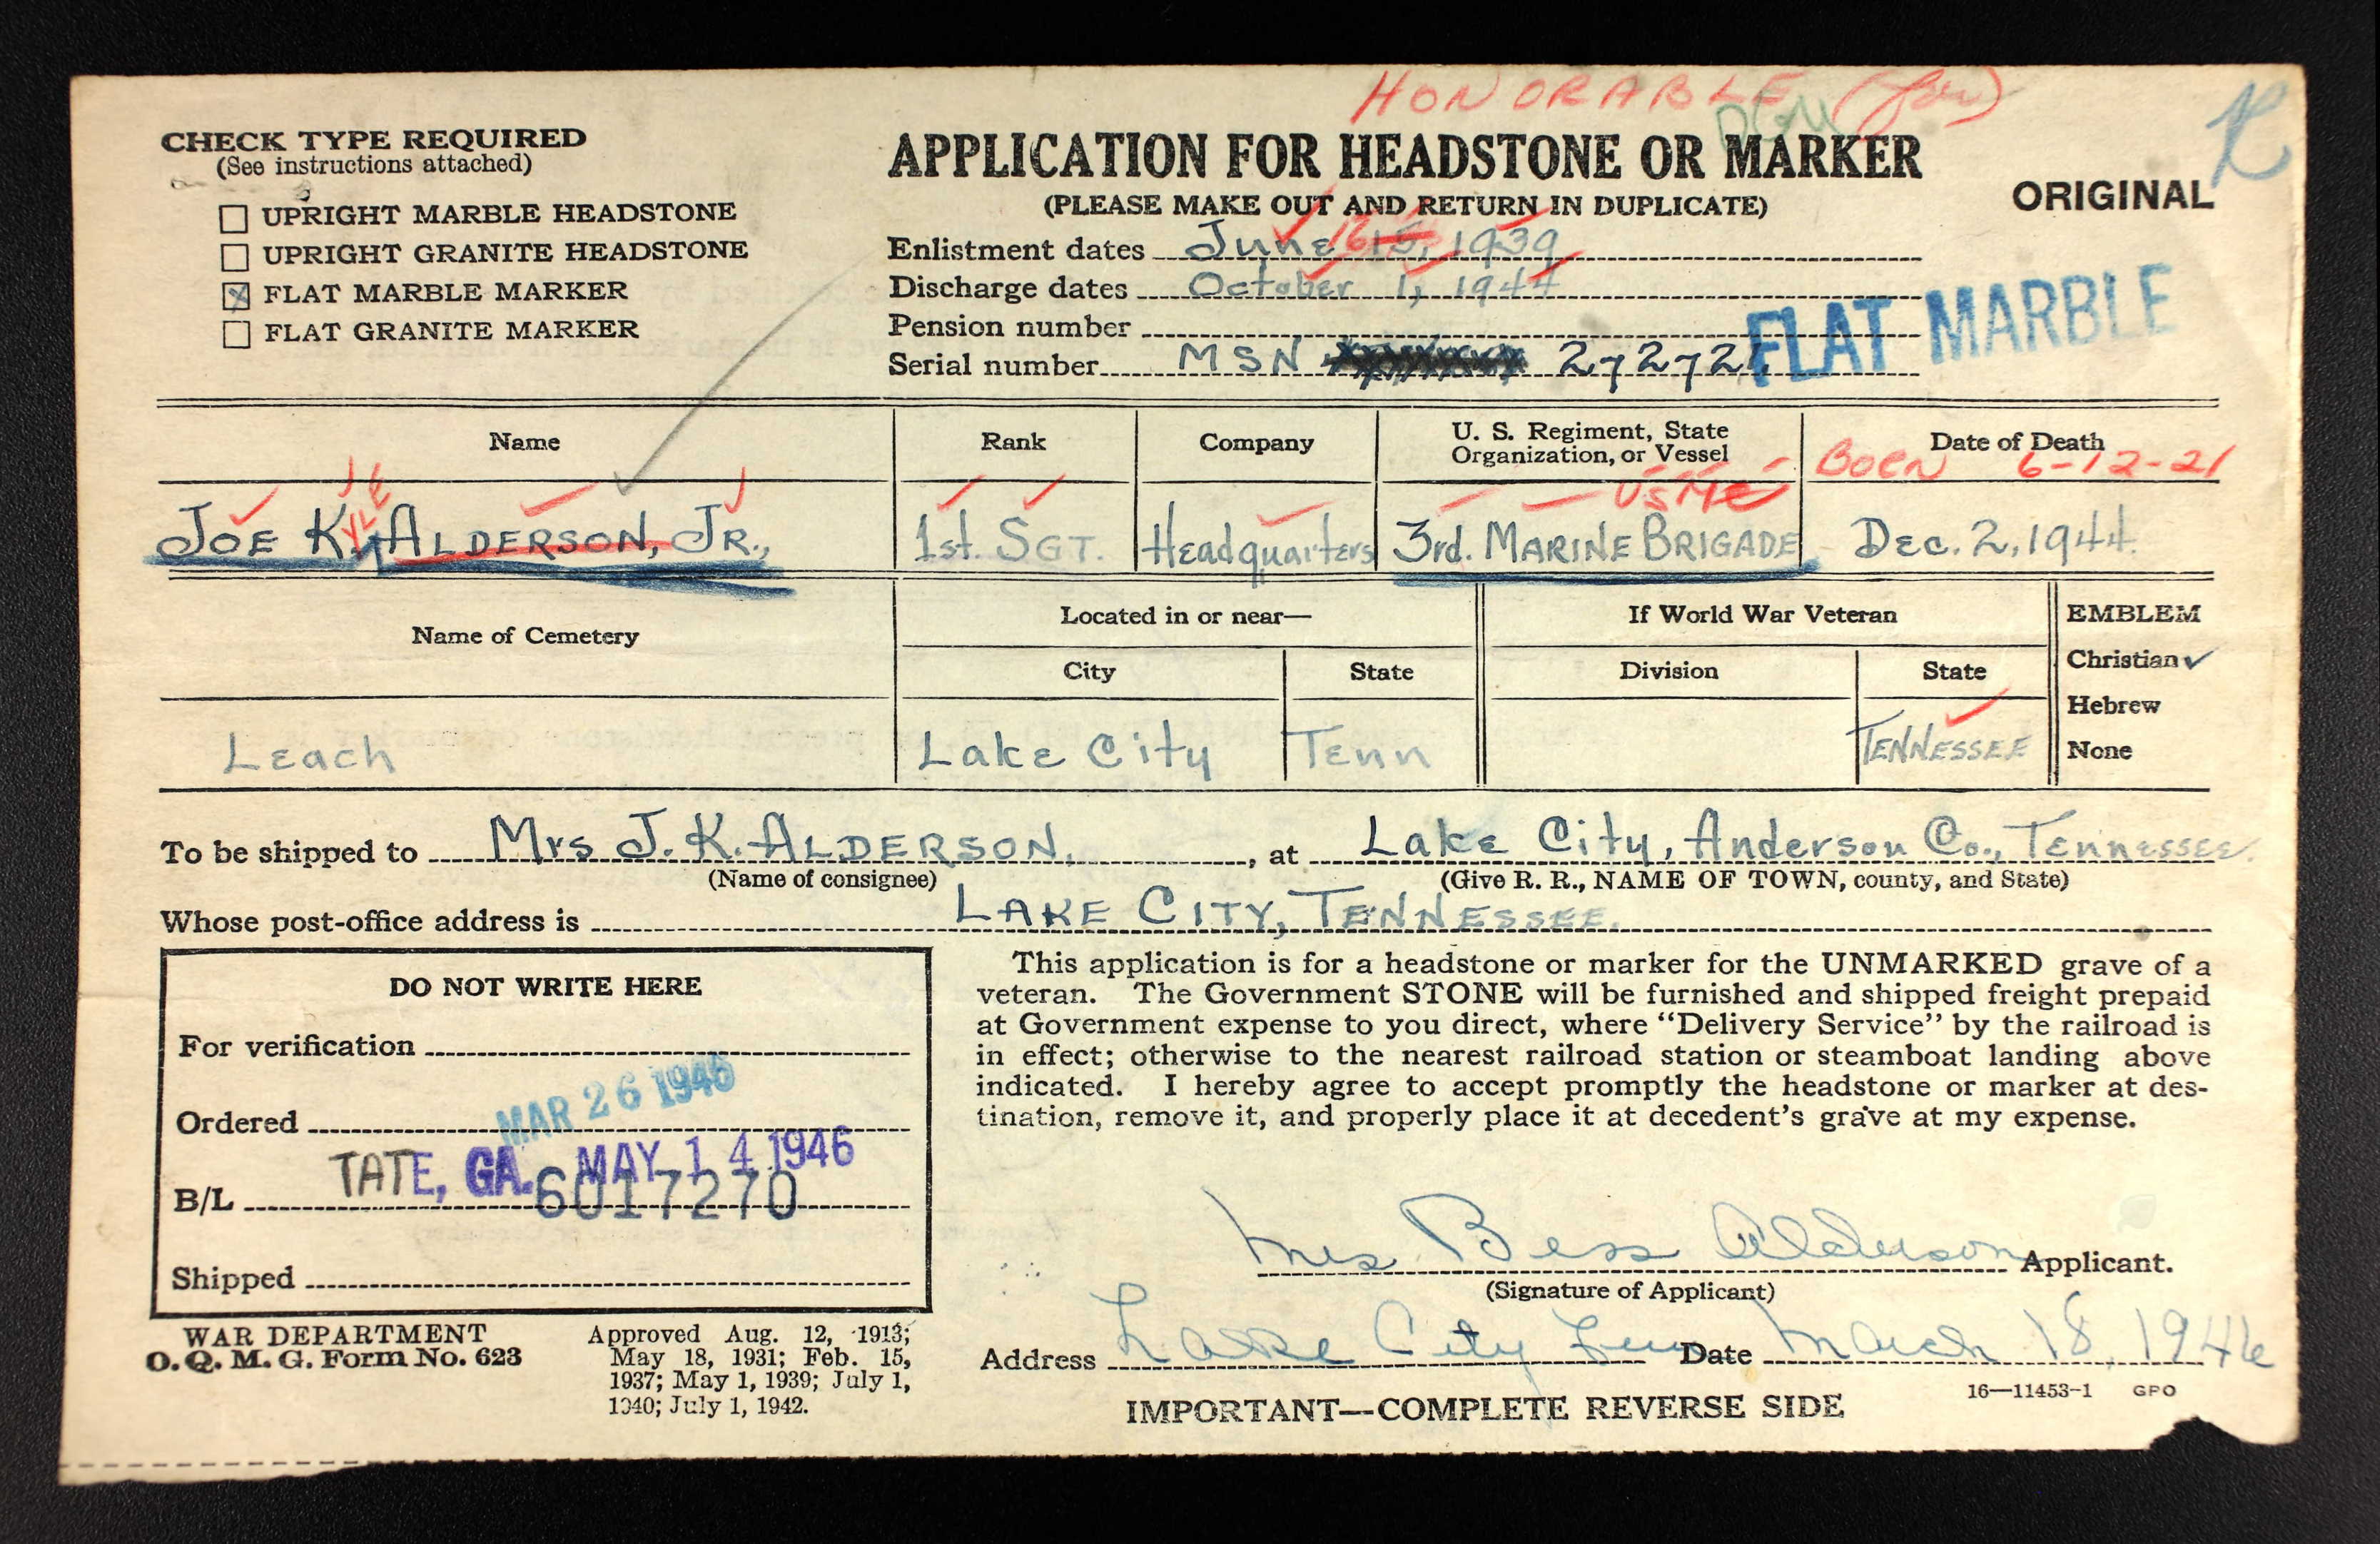 HONORABLE
CHECK TYPE REQUIRED
(See instructions attached)
UPRIGHT MARBLE HEADSTONE
UPRIGHT GRANITE HEADSTONE
X FLAT MARBLE MARKER
FLAT GRANITE MARKER
APPLICATION FOR HEADSTONE OR MARKER
(PLEASE MAKE OUT AND RETURN IN DUPLICATE)
ORIGINAL
K
Enlistment dates June 16 15, 1939
Discharge dates October 1, 1944
Pension number
Serial number MSN 27272
FLAT MARBLE
Name Rank Company U. S. Regiment, State Organization, or Vessel Date of Death
BORN 6-12-21
USMC
JOE K. ALDERSON, JR., 1st. SGT. Headquarters 3rd. MARINE BRIGADE Dec. 2, 1944.
Name of Cemetery Located in or near— If World War Veteran EMBLEM
City State Division State Christian ✓
Hebrew
None
Leach Lake City Tenn TENNESSEE
To be shipped to Mrs J. K. ALDERSON, at Lake City, Anderson Co., Tennessee.
(Name of consignee) (Give R. R., NAME OF TOWN, county, and State)
Whose post-office address is LAKE CITY, TENNESSEE.
DO NOT WRITE HERE
For verification
Ordered MAR 26 1946
TATE, GA. MAY 14 1946
B/L 6017270
Shipped
This application is for a headstone or marker for the UNMARKED grave of a
veteran. The Government STONE will be furnished and shipped freight prepaid
at Government expense to you direct, where "Delivery Service" by the railroad is
in effect; otherwise to the nearest railroad station or steamboat landing above
indicated. I hereby agree to accept promptly the headstone or marker at des-
tination, remove it, and properly place it at decedent's grave at my expense.
Mrs Bess Alderson Applicant.
(Signature of Applicant)
Address Lake City Tenn Date March 18, 1946
WAR DEPARTMENT
O. Q. M. G. Form No. 623
Approved Aug. 12, 1913;
May 18, 1931; Feb. 15,
1937; May 1, 1939; July 1,
1940; July 1, 1942.
IMPORTANT—COMPLETE REVERSE SIDE
16—11453-1 GPO